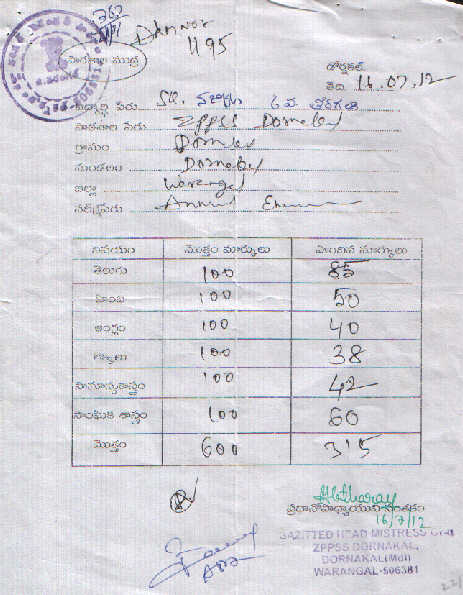 Dannor
1195
పాఠశాల ముద్ర
డోర్నకల్
తేది 16.07.12
విద్యార్థి పేరు SK. 6 వ తరగతి
పాఠశాల పేరు ZPPSS Dornakal
గ్రామం Dornakal
మండలం Dornakal
జిల్లా Warangal
పరీక్షపేరు Annual
విషయం మొత్తం మార్కులు పొందిన మార్కులు
తెలుగు 100 85
హింది 100 50
ఆంగ్లం 100 40
గణితం 100 38
సామాన్యశాస్త్రం 100 42
సాంఘిక శాస్త్రం 100 60
మొత్తం 600 315
ప్రధానోపాధ్యాయుని సంతకం
16/7/12
GAZETTED HEAD MISTRESS GR-II
ZPPSS DORNAKAL,
DORNAKAL(Mdl)
WARANGAL-506381